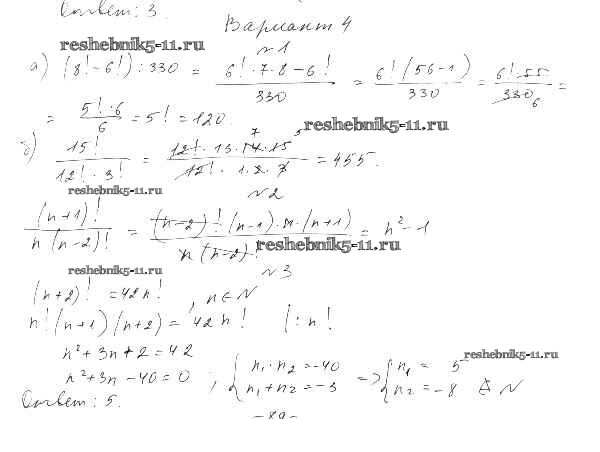 Ответ: 3.
Вариант 4
reshebnik5-11.ru
№1
а) (8! - 6!) : 330 = (6! · 7 · 8 - 6!)/330 = 6! (56 - 1)/330 = 6! · 55/330 6 =
= 5! · 6/6 = 5! = 120.
reshebnik5-11.ru
б) 15!/(12! · 3!) = (12! · 13 · 14 · 15)/(12! · 1 · 2 · 3) = 455. 7 5
reshebnik5-11.ru
№2
(n+1)!/(n (n-2)!) = ((n-2)! (n-1) · n · (n+1))/(n (n-2)!) = n² - 1
reshebnik5-11.ru
reshebnik5-11.ru
№3
(n+2)! = 42n!, n ∈ N
n! (n+1) (n+2) = 42n! | : n!
n² + 3n + 2 = 42
reshebnik5-11.ru
n² + 3n - 40 = 0; { n₁ · n₂ = -40 n₁ + n₂ = -3 => { n₁ = 5 n₂ = -8 ∉ N
Ответ: 5.